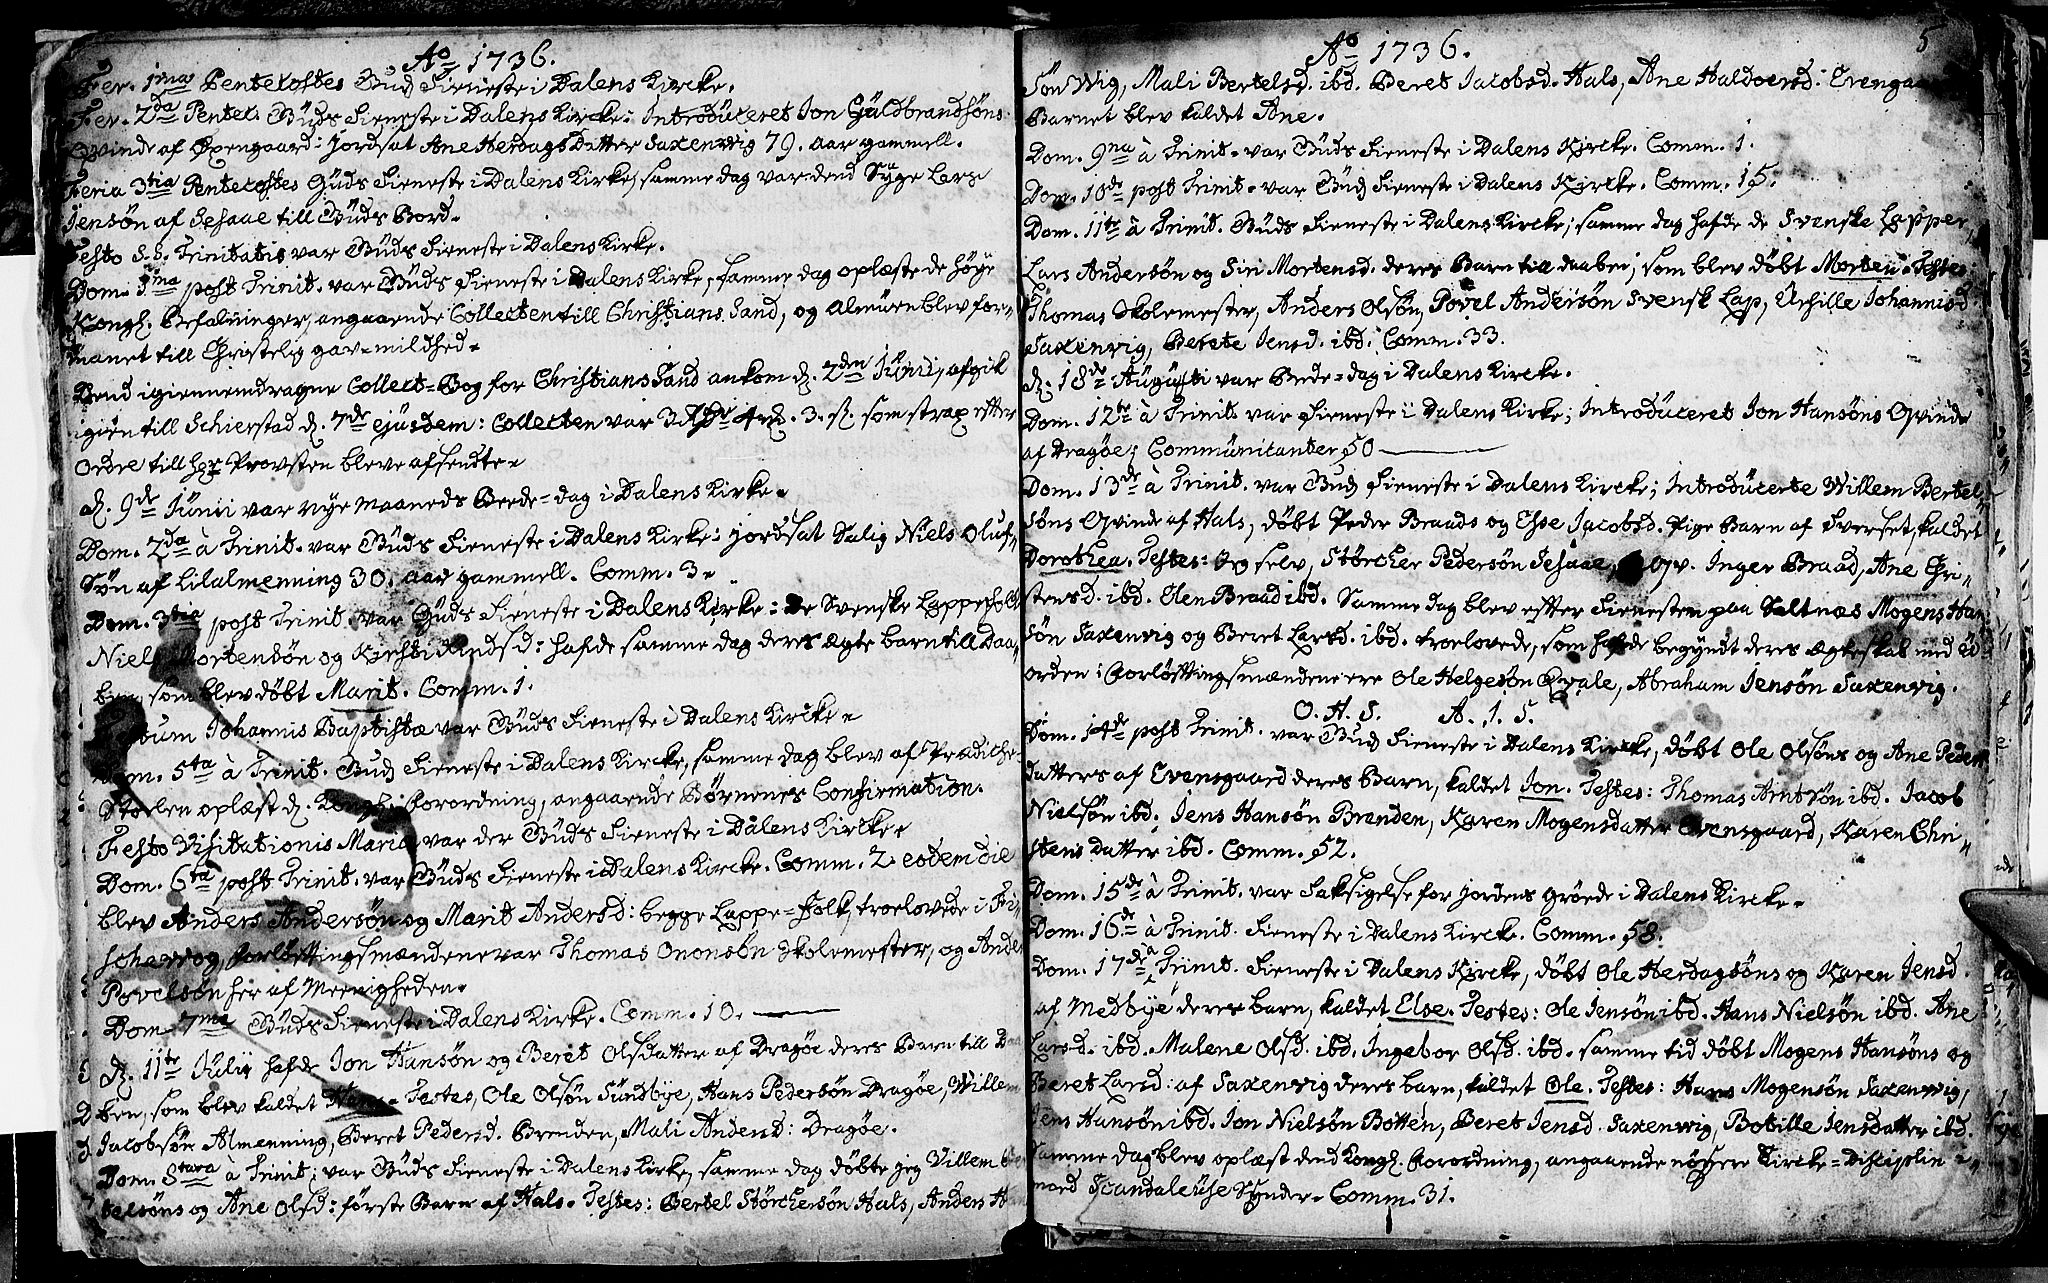 Ao 1736.
Fer. 1ma Pentecostes Guds Tieneste i Dalens Kircke.
Fer. 2da Pentec. Guds Tieneste i Dalens Kircke: Introduceret Jon Guldbrandsøns
Qvinde af Øxengaard: Jordsat Ane Herdags Ditter Saxenvig 79. aar gammell.
Feria 3tia Pentecostes Guds Tieneste i Dalens Kirke, samme dag var dend Syge Lars
Jensøn af Sesaae till Guds Bord.
Festo S.S. Trinitatis var Guds Tieneste i Dalens Kirke.
Dom. 1ma post Trinit. var Guds Tieneste i Dalens Kirke, samme dag oplæste de høye
Kongl. Befalninger, angaaende Collecten till Christians Sand, og Almuen blev for-
manet till Christelig gav-mildhed.
Dend igiennemdragne Collect-Bog for Christians Sand ankom d. 2den Junii, afgik
igien till Schierstad d. 7de ejusdem: Collecten var 3 Rdr 4 . 3. s. som strax efter
Ordre till her Provsten bleve afsendte.
d. 9de Junii var nye Maaneds Beede-dag i Dalens Kirke.
Dom. 2da à Trinit. var Guds Tieneste i Dalens Kirke: jordsat Salig Niels Oluf-
Søn af Lilalmenning 30. aar gammell. Comm. 3.
Dom. 3tia post Trinit. var Guds Tieneste i Dalens Kirke: De Svenske Lappefolk
Niels Mortensøn og Kirsti Andsd: hafde samme dag deres ægte barn till Daa-
ben, som blev døbt Marit. Comm. 1.
Festum Johannis Baptistæ var Guds Tieneste i Dalens Kircke.
Dom. 5ta à Trinit. Guds Tieneste i Dalens Kircke, samme dag blev af Prædiche-
Stoelen oplæst d. Kongl. Forordning, angaaende Børnenes Confirmation.
Festo Visitationis Mariæ var der Guds Tieneste i Dalens Kircke.
Dom. 6ta post Trinit. var Guds Tieneste i Dalens Kircke. Comm. 2. eodem die
blev Anders Andersøn og Marit Andersd: begge Lappe-Folk, troelovede i Fi-
scherrog, Forløftingsmændene var Thomas Ononsøn Skolemester, og Anders
Povelsøn her af Meenigheden.
Dom. 7me Guds Tieneste i Dalens Kirke. Comm. 10.
d. 11te Julii hafde Jon Hansøn og Beret Olsdatter af Dragøe deres Barn till Daa-
ben, som blev kaldet Hans. Testes, Ole Olsøn Sundbye, Hans Pedersøn Dragøe, Willem
Jacobsøn Almenning, Beret Pedersd. Brenden, Mali Andersd: Dragøe.
Dom. 8tava à Trinit: var Guds Tieneste i Dalens Kirke, samme dag døbte jeg Villem Ber-
telsøns og Ane Olsd: første Barn af Hals. Testes: Bertel Størchersøn Hals, Anders Han
Ao 1736.
5
Søn Wig, Mali Bertelsd. ibd. Beret Jacobsd. Hals, Ane Haldoersd: Evengaard
Barnet blev kaldet Ane.
Dom. 9na à Trinit. var Guds Tieneste i Dalens Kircke. Comm. 1.
Dom. 10de post Trinit. var Guds Tieneste i Dalens Kircke. Comm. 15.
Dom. 11te à Trinit. Guds Tieneste i Dalens Kircke; samme dag hafde de Svenske Lapper,
Lars Andersøn og Siri Mortensd. deres Barn till daaben, som blev døbt Morten. Testes
Thomas Skolemester, Anders Olsøn, Povel Andersøn Svensk Lap, Johannisd.
Saxenvig, Berete Jensd. ibd: Comm. 33.
d. 18de Augusti var Bede-dag i Dalens Kircke.
Dom. 12te à Trinit. var Tieneste i Dalens Kirke; Introduceret Jon Hansøns Qvinde
af Dragøe; Communicanter 50
Dom. 13de à Trinit. var Guds Tieneste i Dalens Kircke; Introducerte Willem Bertel-
søns Qvinde af Hals, døbt Peder Braads og Else Jacobsd. Pige Barn af Sverset, kaldet
Dorothea. Testes: Jeg selv, Størcher Pedersøn Sesaae, Inger Braad, Ane Chri-
stensd. ibd. Olen Braad ibd. Samme dag blev efter Tienesten paa Saltnæs Mogens Han-
søn Saxenvig og Beret Larsd. ibd. troelovede, som hafde begyndt deres Ægteskab med U-
orden: Forløftingsmændene ere Ole Helgesøn Qvale, Abraham Jensøn Saxenvig.
O. H. S. A. I. S.
Dom. 14de post Trinit. var Guds Tieneste i Dalens Kircke, døbt Ole Olsøns og Ane Peders-
datters af Evensgaard deres Barn, kaldet Jon. Testes: Thomas Arntsøn ibd. Jacob
Nielsøn ibd. Jens Hansøn Brenden, Karen Mogensdatter Evensgaard, Karen Chri-
stens datter ibd. Comm. 52.
Dom. 15de à Trinit. var Taksigelse for jordens Grøde i Dalens Kircke.
Dom. 16de à Trinit. Tieneste i Dalens Kircke. Comm. 58.
Dom. 17de à Trinit. Tieneste i Dalens Kircke, døbt Ole Herdagsøns og Karen Jensd.
af Medbye deres barn, kaldet Else. Testes: Ole Jensøn ibd. Hans Nielsøn ibd. Ane
Larsd. ibd. Malene Olsd. ibd. Ingebor Olsd. ibd. samme tid døbt Mogens Hansøns og
Beret Larsd: af Saxenvig deres barn, kaldet Ole. Testes: Hans Mogensøn Saxenvig,
Jens Hansøn ibd. Jon Nielsøn Botten, Beret Jensd. Saxenvig, Botille Jensdatter ibd.
Samme dag blev oplæst dend Kongl. Forordning, angaaende nøyere Kircke-Disciplin i-
mod Scandaleuse Synder. Comm. 31.